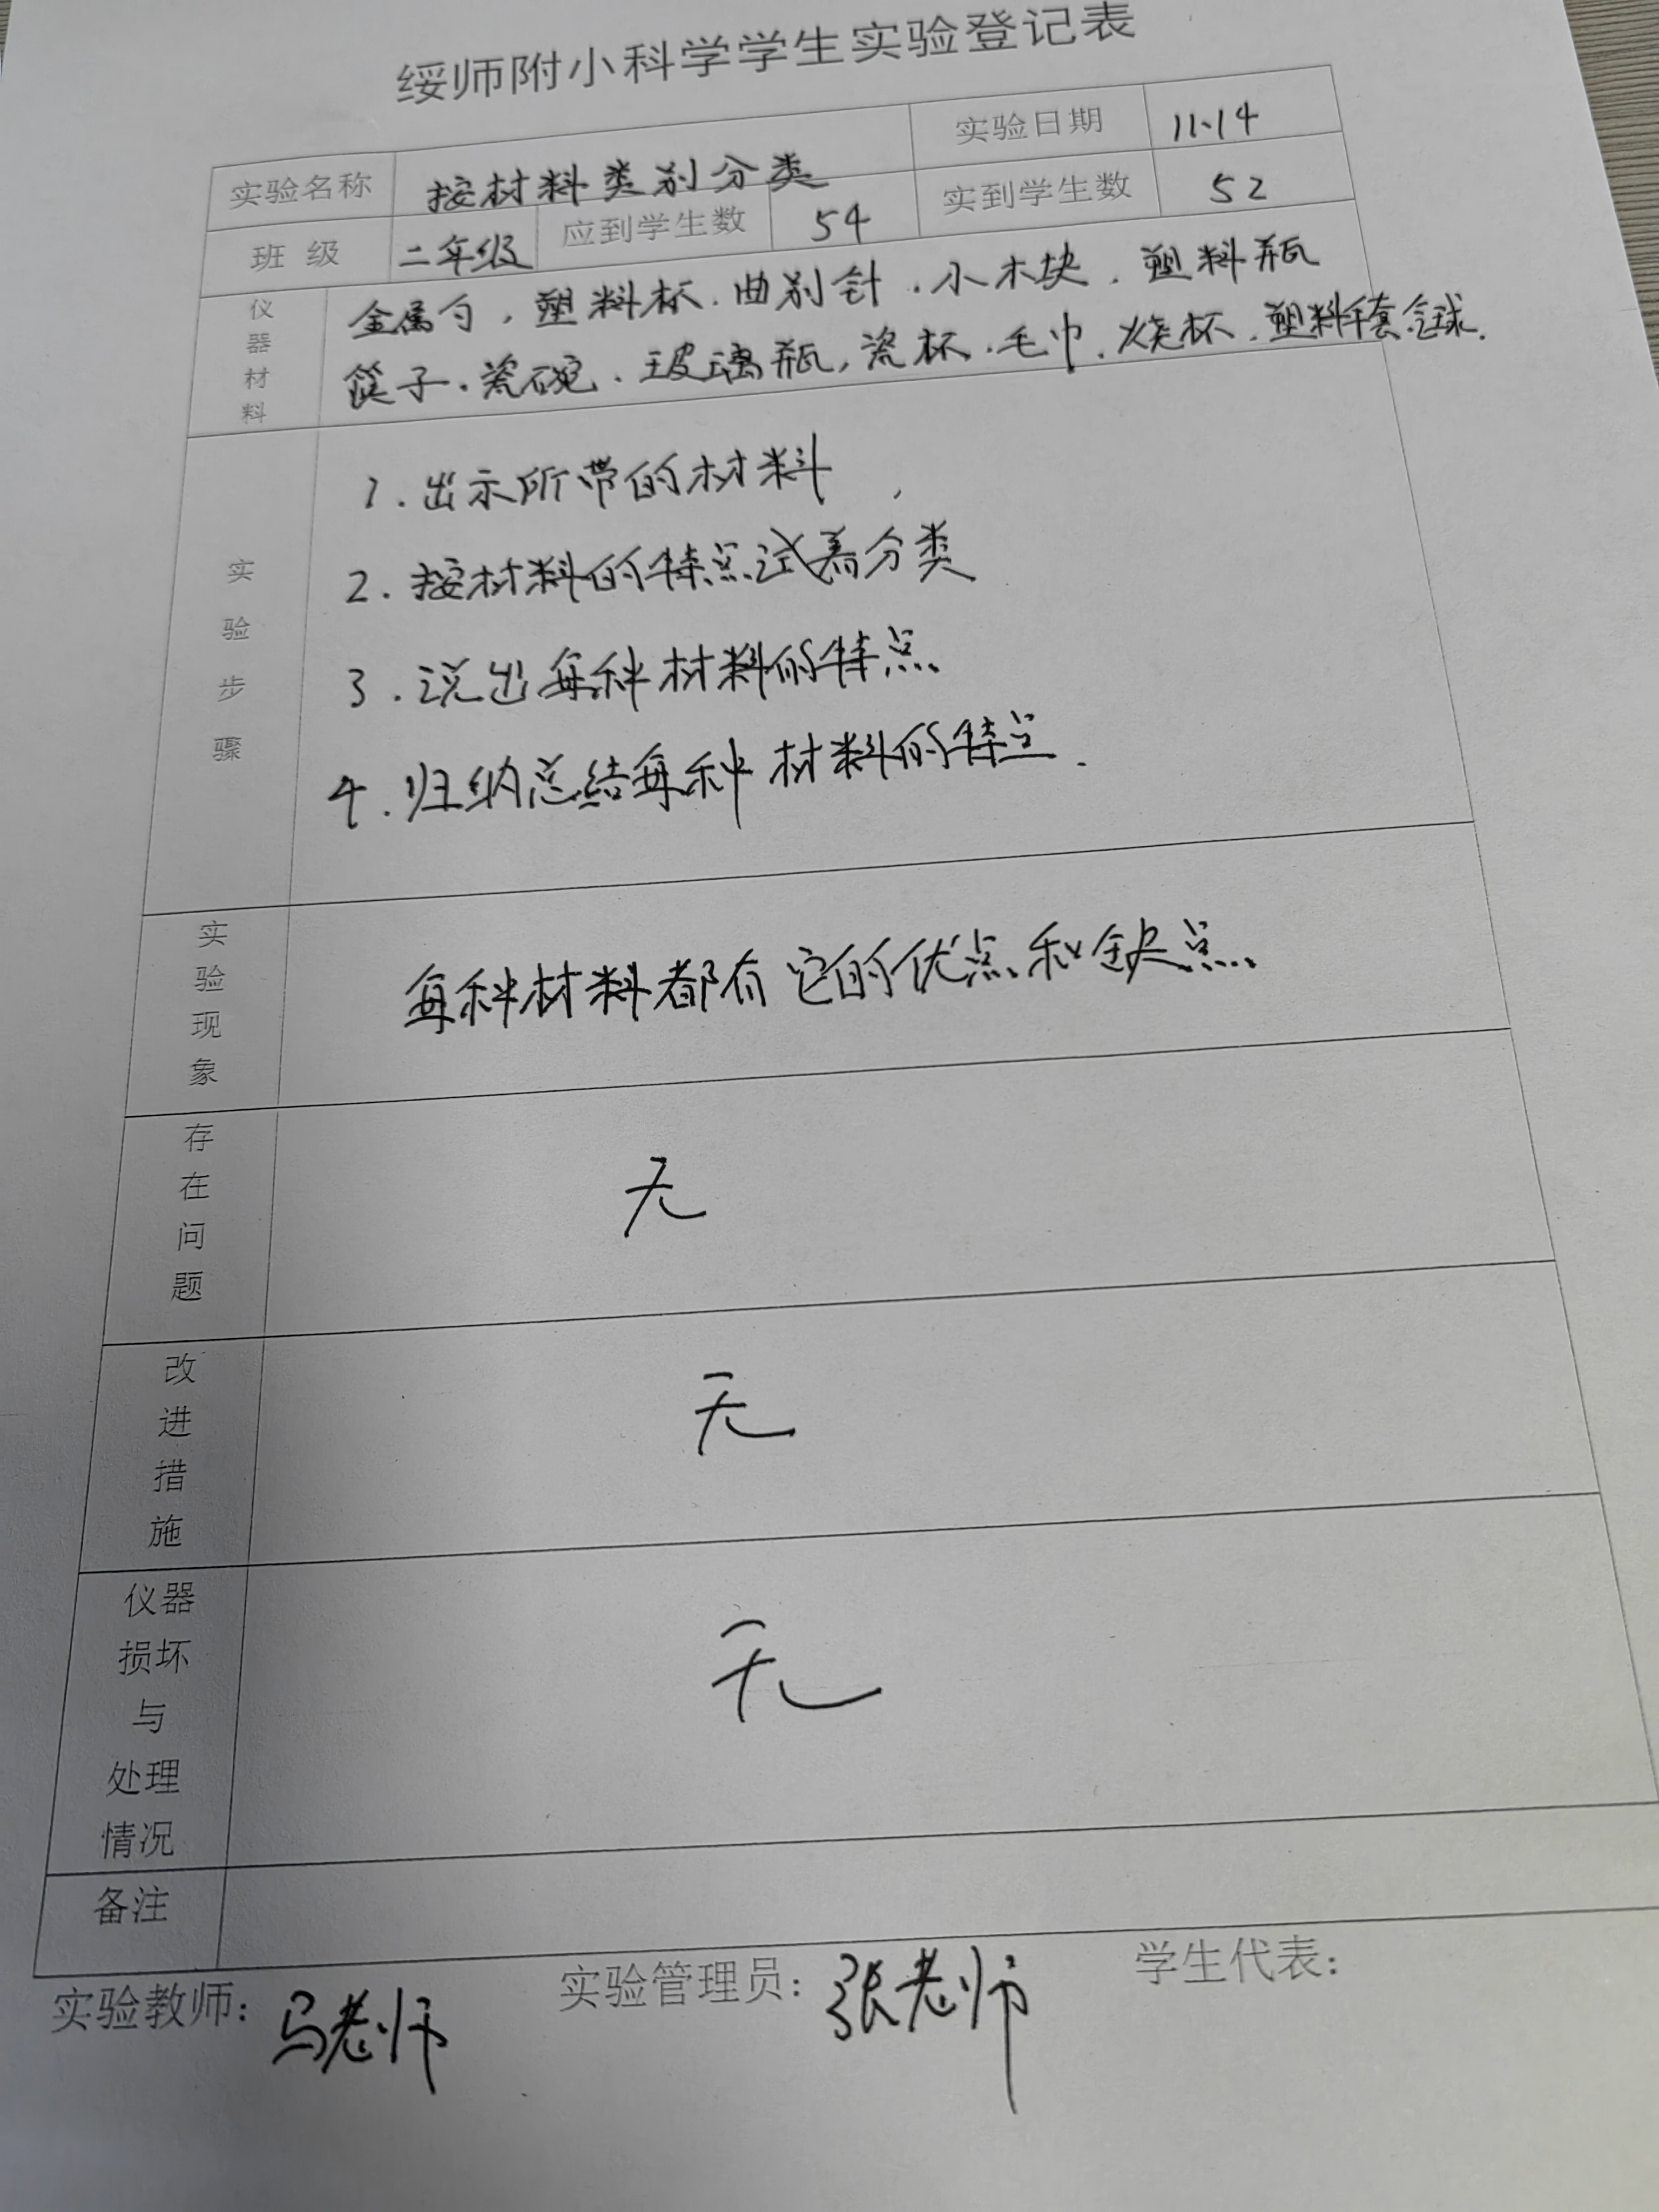 绥师附小科学学生实验登记表
实验名称 按材料类别分类 实验日期 11.14
班 级 二年级 应到学生数 54 实到学生数 52
仪器材料 金属勺，塑料杯．曲别针．小木块．塑料瓶
筷子．瓷碗．玻璃瓶，瓷杯．毛巾．烧杯．塑料手套气球．
实验步骤
1．出示所带的材料
2．按材料的特点试着分类
3．说出每种材料的特点
4．归纳总结每种材料的特点．
实验现象 每种材料都有它的优点和缺点
存在问题 无
改进措施 无
仪器损坏与处理情况 无
备注
实验教师：马老师 实验管理员：张老师 学生代表：